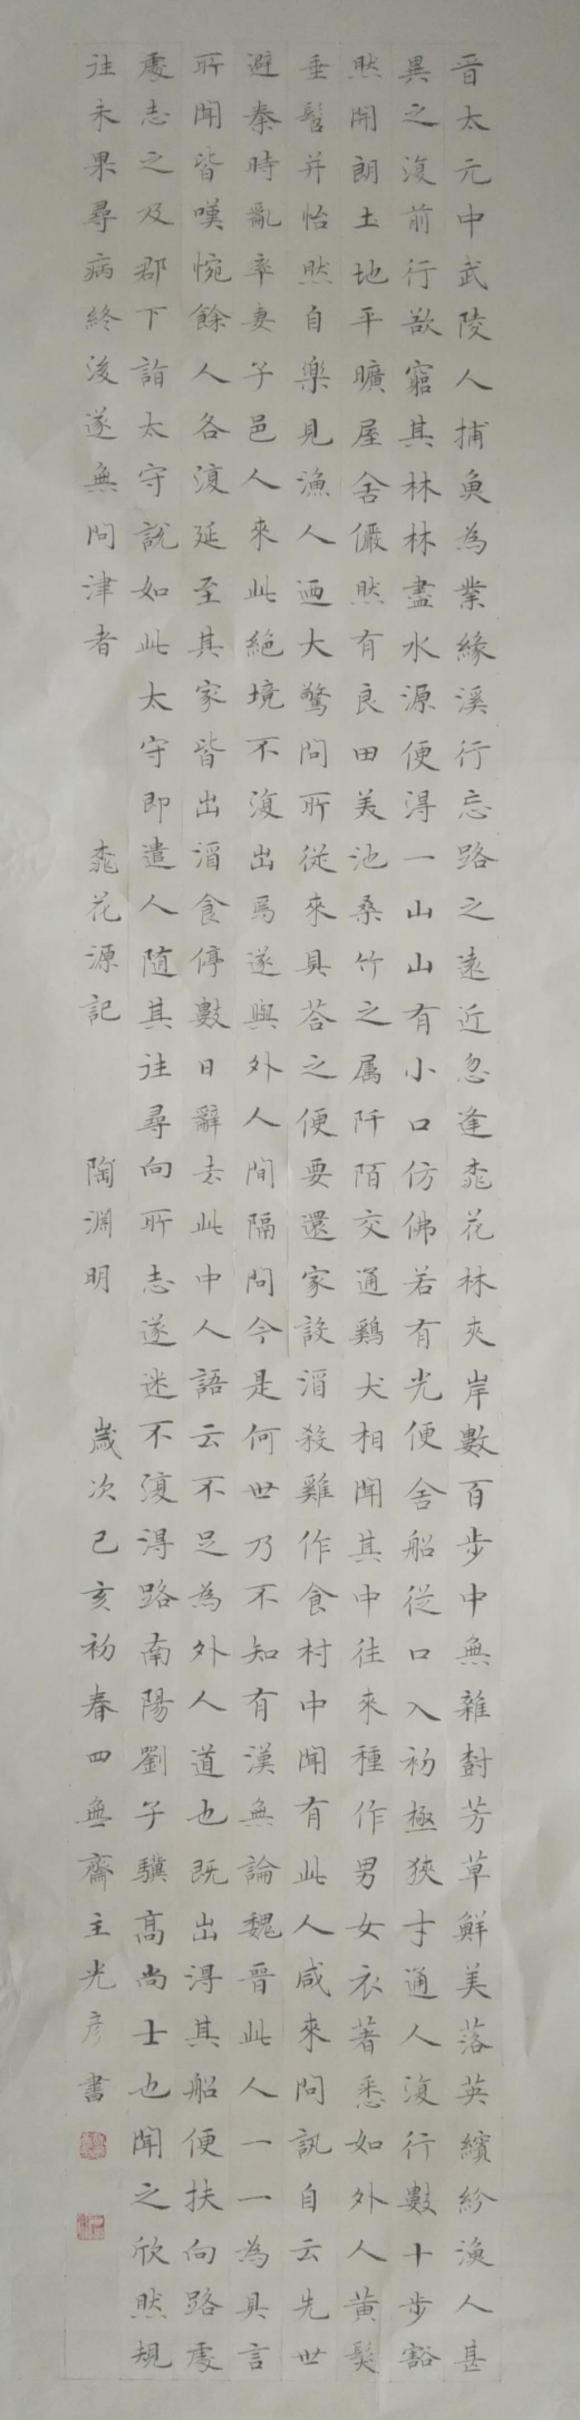 晉太元中武陵人捕魚為業緣溪行忘路之遠近忽逢桃花林夾岸數百步中無雜樹芳草鮮美落英繽紛漁人甚
異之復前行欲窮其林林盡水源便得一山山有小口仿佛若有光便舍船從口入初極狹才通人復行數十步豁
然開朗土地平曠屋舍儼然有良田美池桑竹之属阡陌交通鷄犬相聞其中往來種作男女衣著悉如外人黃髮
垂髫并怡然自樂見漁人迺大驚問所從來具荅之便要還家設酒殺雞作食村中聞有此人咸來問訊自云先世
避秦時亂率妻子邑人來此絕境不復出焉遂與外人間隔問今是何世乃不知有漢無論魏晉此人一一為具言
所聞皆嘆惋餘人各復延至其家皆出酒食停數日辭去此中人語云不足為外人道也既出得其船便扶向路處
處志之及郡下詣太守說如此太守即遣人隨其往尋向所志遂迷不復得路南陽劉子驥高尚士也聞之欣然規
往未果尋病終後遂無問津者 桃花源記 陶淵明 歲次己亥初春四無齋主光彥書